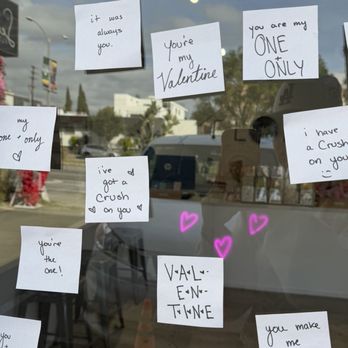 it was
always
you.
You're
my
Valentine
you are my
ONE
+
ONLY
my
one + only
i have
a Crush
on you
i've
got a
Crush
on you
you're
the
one!
V•A•L•
E•N•
T•I•N•E
you make
me
You